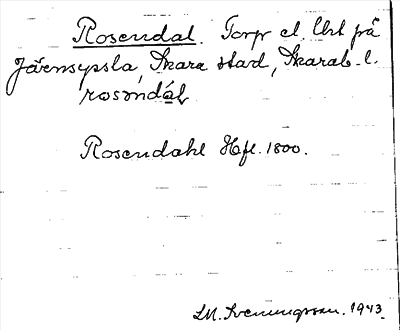 Rosendal. Torp el. Uts på
Järnsyssla, Skara stad, Skarab. l.
rosəndál
Rosendahl Hfl. 1800.
LM. Svenungsson. 1943.